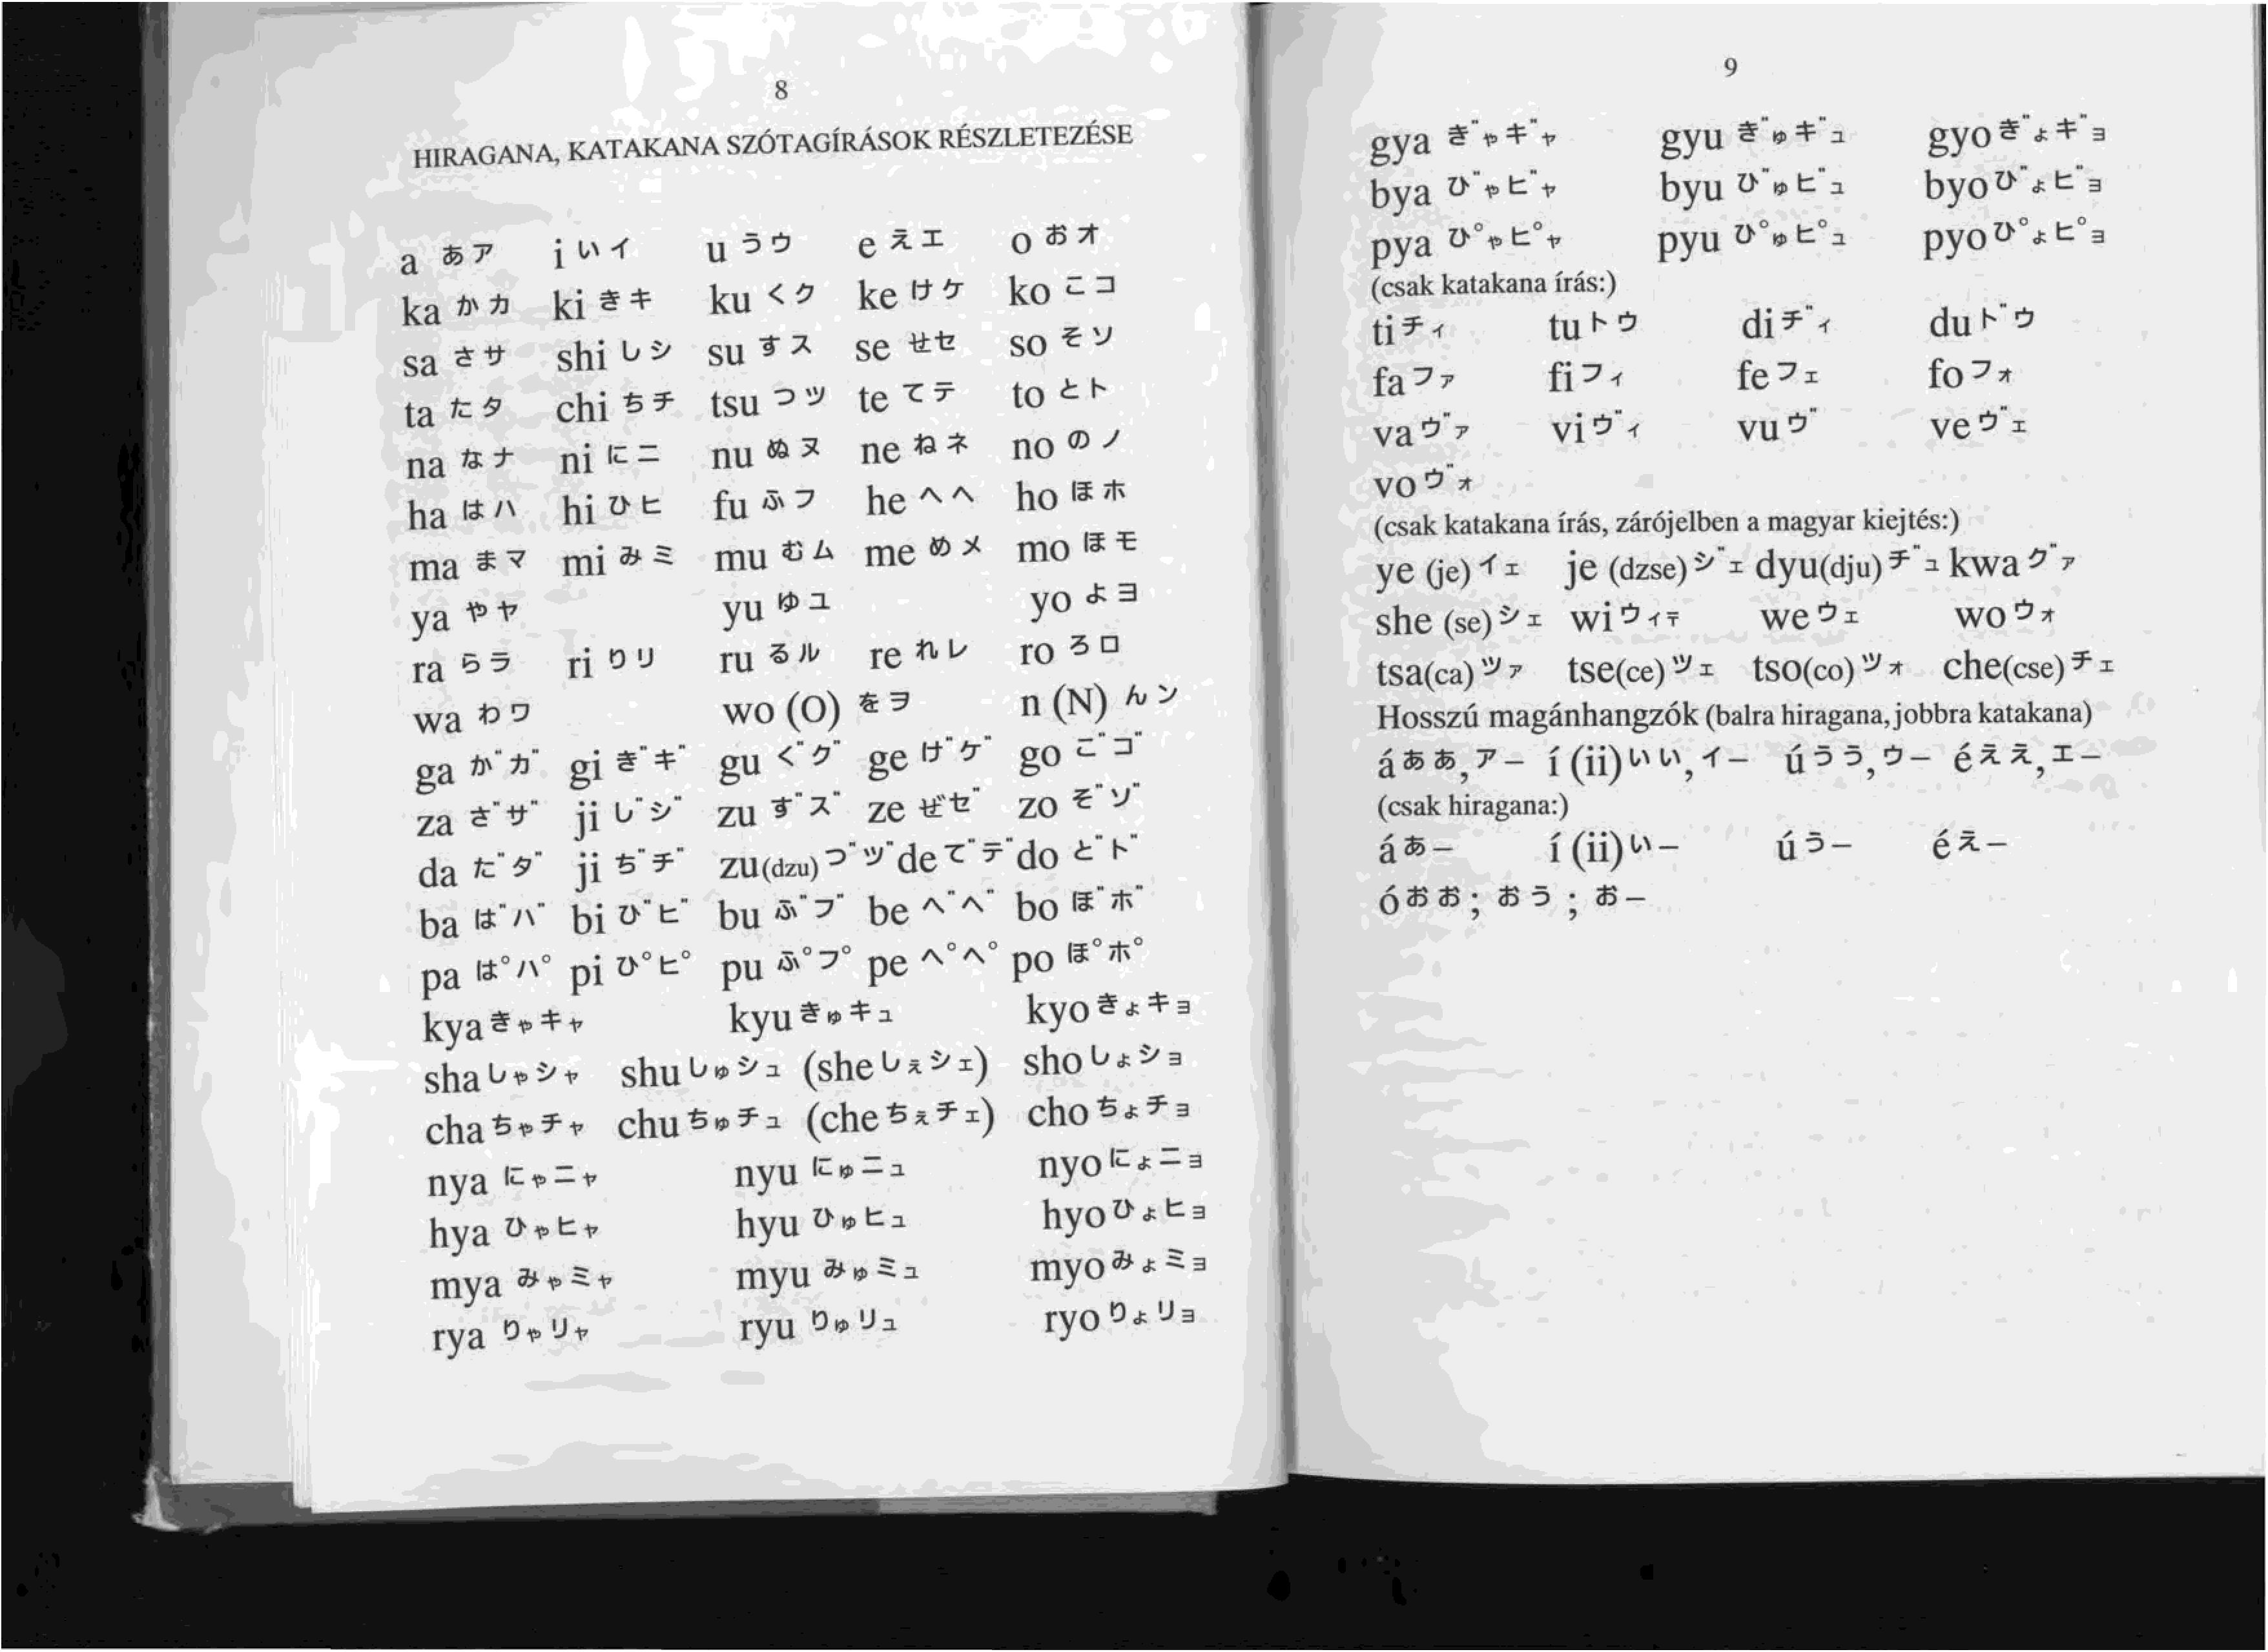 8
HIRAGANA, KATAKANA SZÓTAGÍRÁSOK RÉSZLETEZÉSE
a あア i いイ u うウ e えエ o おオ
ka かカ ki きキ ku くク ke けケ ko こコ
sa さサ shi しシ su すス se せセ so そソ
ta たタ chi ちチ tsu つツ te てテ to とト
na なナ ni にニ nu ぬヌ ne ねネ no のノ
ha はハ hi ひヒ fu ふフ he へヘ ho ほホ
ma まマ mi みミ mu むム me めメ mo ほモ
ya やヤ yu ゆユ yo よヨ
ra らラ ri りリ ru るル re れレ ro ろロ
wa わワ wo (O) をヲ n (N) んン
ga か゛カ゛ gi き゛キ゛ gu く゛ク゛ ge け゛ケ゛ go こ゛コ゛
za さ゛サ゛ ji し゛シ゛ zu す゛ス゛ ze ぜセ゛ zo そ゛ソ゛
da た゛タ゛ ji ち゛チ゛ zu(dzu) つ゛ツ゛ de て゛テ゛ do と゛ト゛
ba は゛ハ゛ bi ひ゛ヒ゛ bu ふ゛フ゛ be へ゛ヘ゛ bo ほ゛ホ゛
pa は゜ハ゜ pi ひ゜ヒ゜ pu ふ゜フ゜ pe へ゜ヘ゜ po ほ゜ホ゜
kya きゃキャ kyu きゅキュ kyo きょキョ
sha しゃシャ shu しゅシュ (she しぇシェ) sho しょショ
cha ちゃチャ chu ちゅチュ (che ちぇチェ) cho ちょチョ
nya にゃニャ nyu にゅニュ nyo にょニョ
hya ひゃヒャ hyu ひゅヒュ hyo ひょヒョ
mya みゃミャ myu みゅミュ myo みょミョ
rya りゃリャ ryu りゅリュ ryo りょリョ
9
gya き゛ゃキ゛ャ gyu き゛ゅキ゛ュ gyo き゛ょキ゛ョ
bya ひ゛ゃヒ゛ャ byu ひ゛ゅヒ゛ュ byo ひ゛ょヒ゛ョ
pya ひ゜ゃヒ゜ャ pyu ひ゜ゅヒ゜ュ pyo ひ゜ょヒ゜ョ
(csak katakana írás:)
ti チィ tu トウ di チ゛ィ du ト゛ウ
fa ファ fi フィ fe フェ fo フォ
va ウ゛ァ vi ウ゛ィ vu ウ゛ ve ウ゛ェ
vo ウ゛ォ
(csak katakana írás, zárójelben a magyar kiejtés:)
ye (je) イェ je (dzse) シ゛ェ dyu(dju) チ゛ュ kwa ク゛ァ
she (se) シェ wi ウィテ we ウェ wo ウォ
tsa(ca) ツァ tse(ce) ツェ tso(co) ツォ che(cse) チェ
Hosszú magánhangzók (balra hiragana, jobbra katakana)
á ああ, アー í (ii) いい, イー ú うう, ウー é ええ, エー
(csak hiragana:)
á あー í (ii) いー ú うー é えー
ó おお; おう; おー